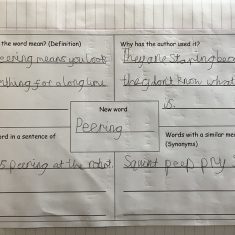 the word mean? (Definition)
Why has the author used it?
Peering means you look
They are staring beca
nthing for a long time
they don't know what
is.
New word
Peering
ord in a sentence of
Words with a similar mea
(Synonyms)
s peering at the robot.
Squint peep pry